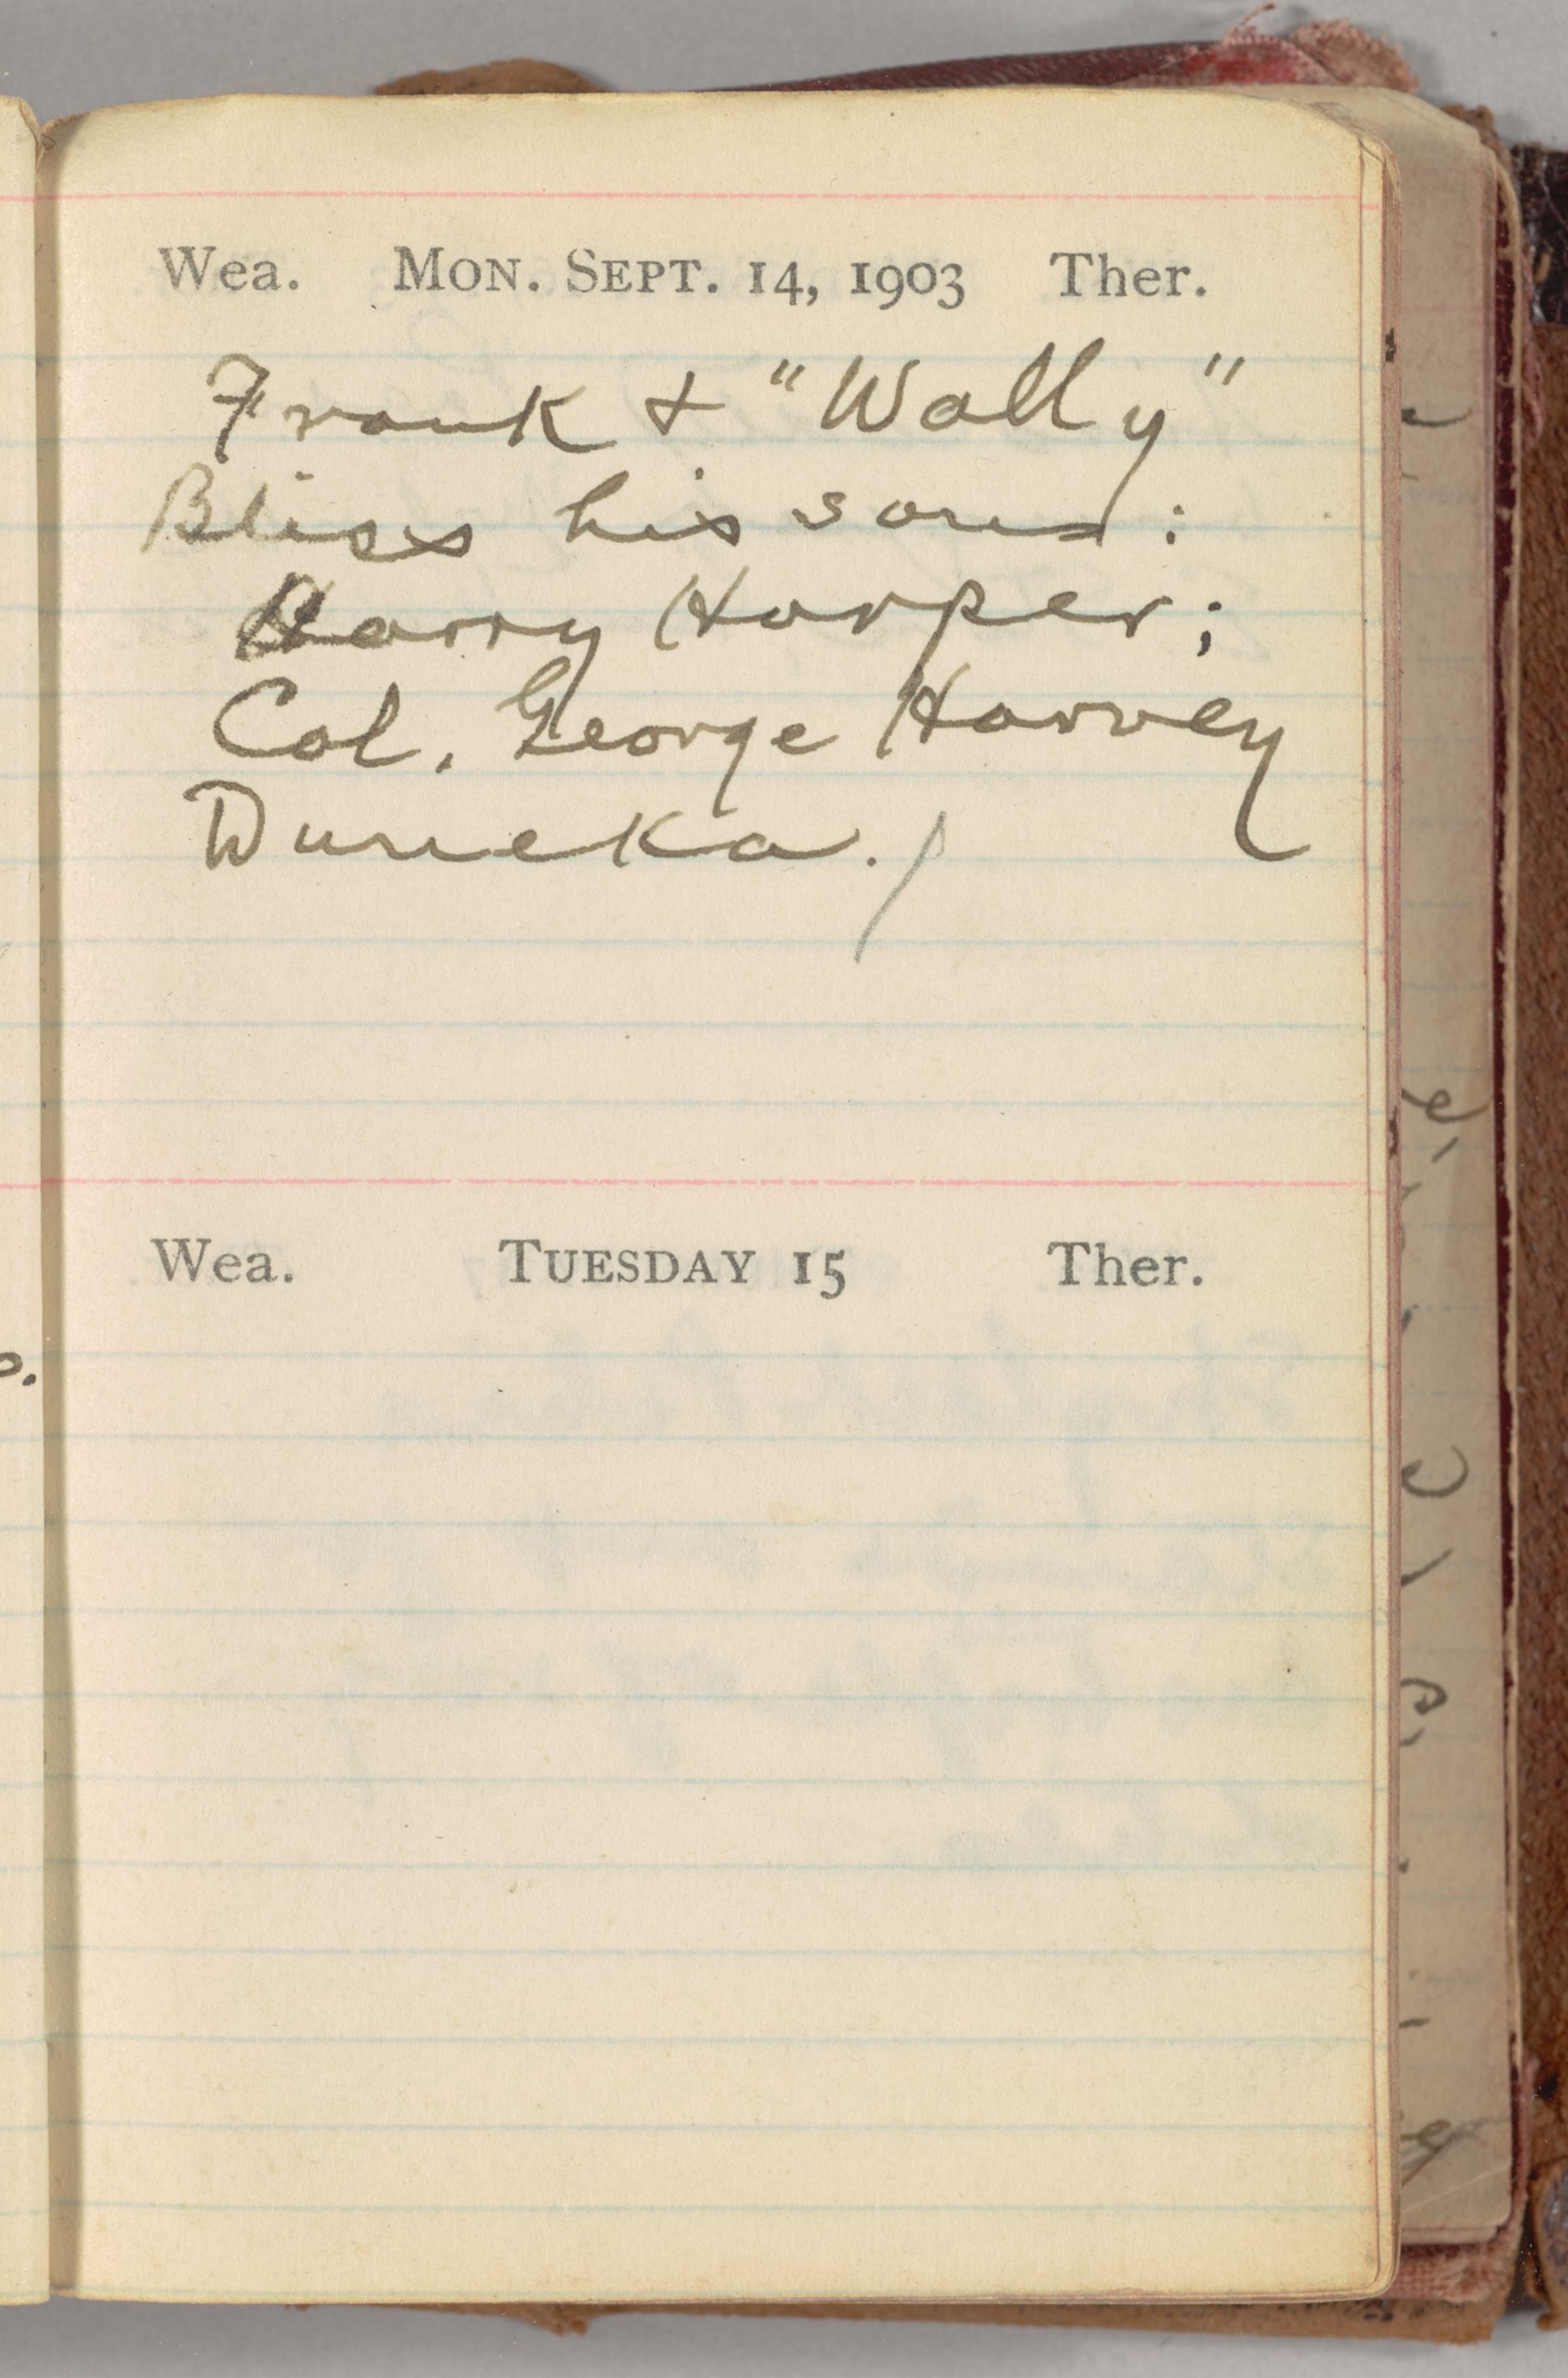 Wea. MON. SEPT. 14, 1903 Ther.
Frank & "Wally"
Bliss his sons:
Harry Harper;
Col. George Harvey
Duneka.
Wea. TUESDAY 15 Ther.